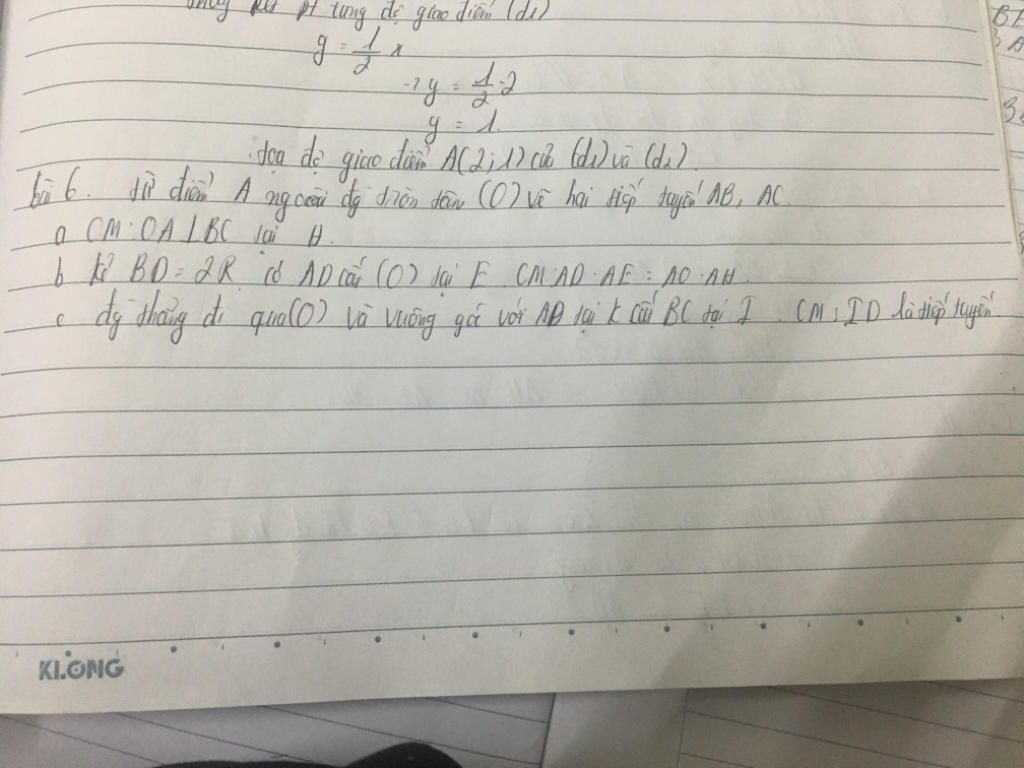 thay vào pt tung độ giao điểm (d1)
y = 1/2 x
→ y = 1/2 . 2
y = 1.
. tọa độ giao điểm A(2;1) của (d1) và (d2).
bài 6. từ điểm A ngoài đg tròn tâm (O) vẽ hai tiếp tuyến AB, AC.
a CM: OA ⊥ BC tại H.
b kẻ BD = 2R. có AD cắt (O) tại E. CM: AD . AE = AO . AH.
c đg thẳng đi qua (O) và vuông góc với AD tại K cắt BC tại I. CM: ID là tiếp tuyến.
KLONG
BE